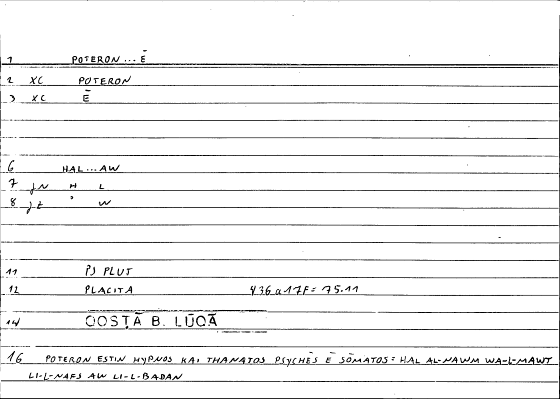 1 POTERON ... Ē
2 XC POTERON
3 XC Ē
6 HAL ... AW
7 JN H L
8 JZ ' W
11 PS PLUT
12 PLACITA 436a17F = 75.11
14 QOSṬĀ B. LŪQĀ
16 POTERON ESTIN HYPNOS KAI THANATOS PSYCHĒS Ē SŌMATOS = HAL AL-NAWM WA-L-MAWT
LI-L-NAFS AW LI-L-BADAN